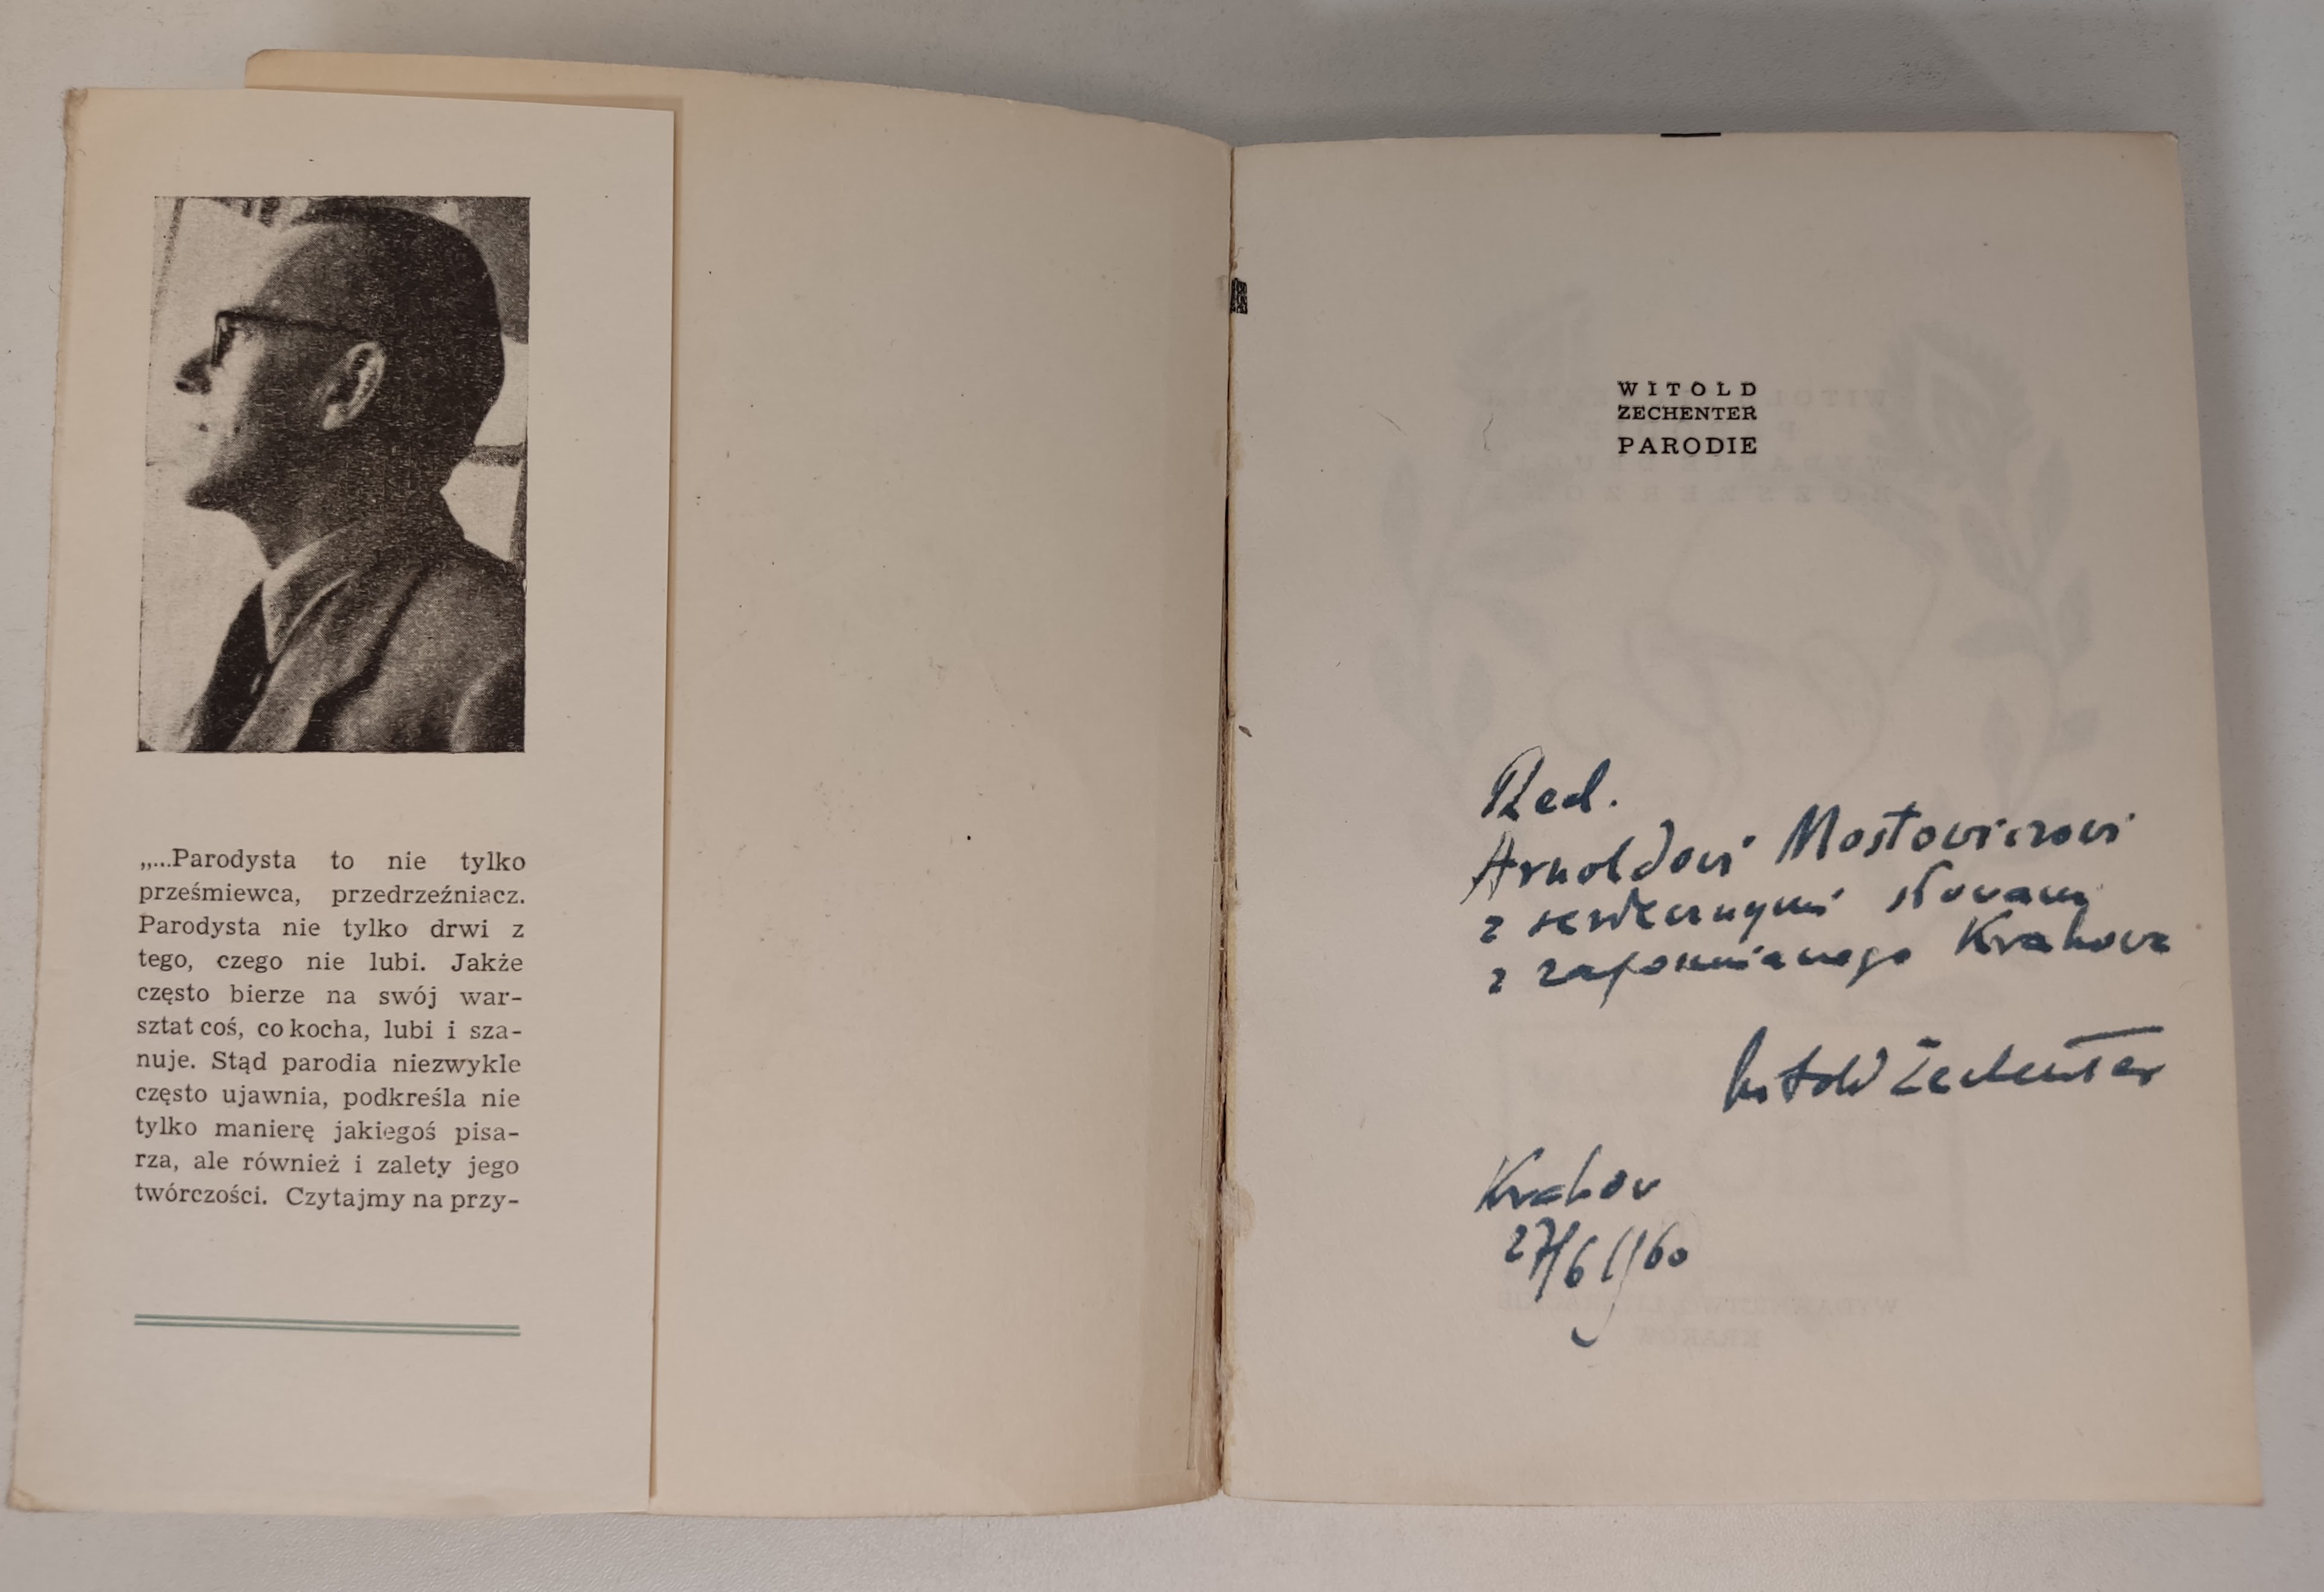 „...Parodysta to nie tylko
prześmiewca, przedrzeźniacz.
Parodysta nie tylko drwi z
tego, czego nie lubi. Jakże
często bierze na swój war-
sztat coś, co kocha, lubi i sza-
nuje. Stąd parodia niezwykle
często ujawnia, podkreśla nie
tylko manierę jakiegoś pisa-
rza, ale również i zalety jego
twórczości. Czytajmy na przy-
WITOLD
ZECHENTER
PARODIE
Red.
Arnoldowi Mostowiczowi
z serdecznymi słowami
z zapomnianego Krakowa
Witold Zechenter
Kraków
27/6/60